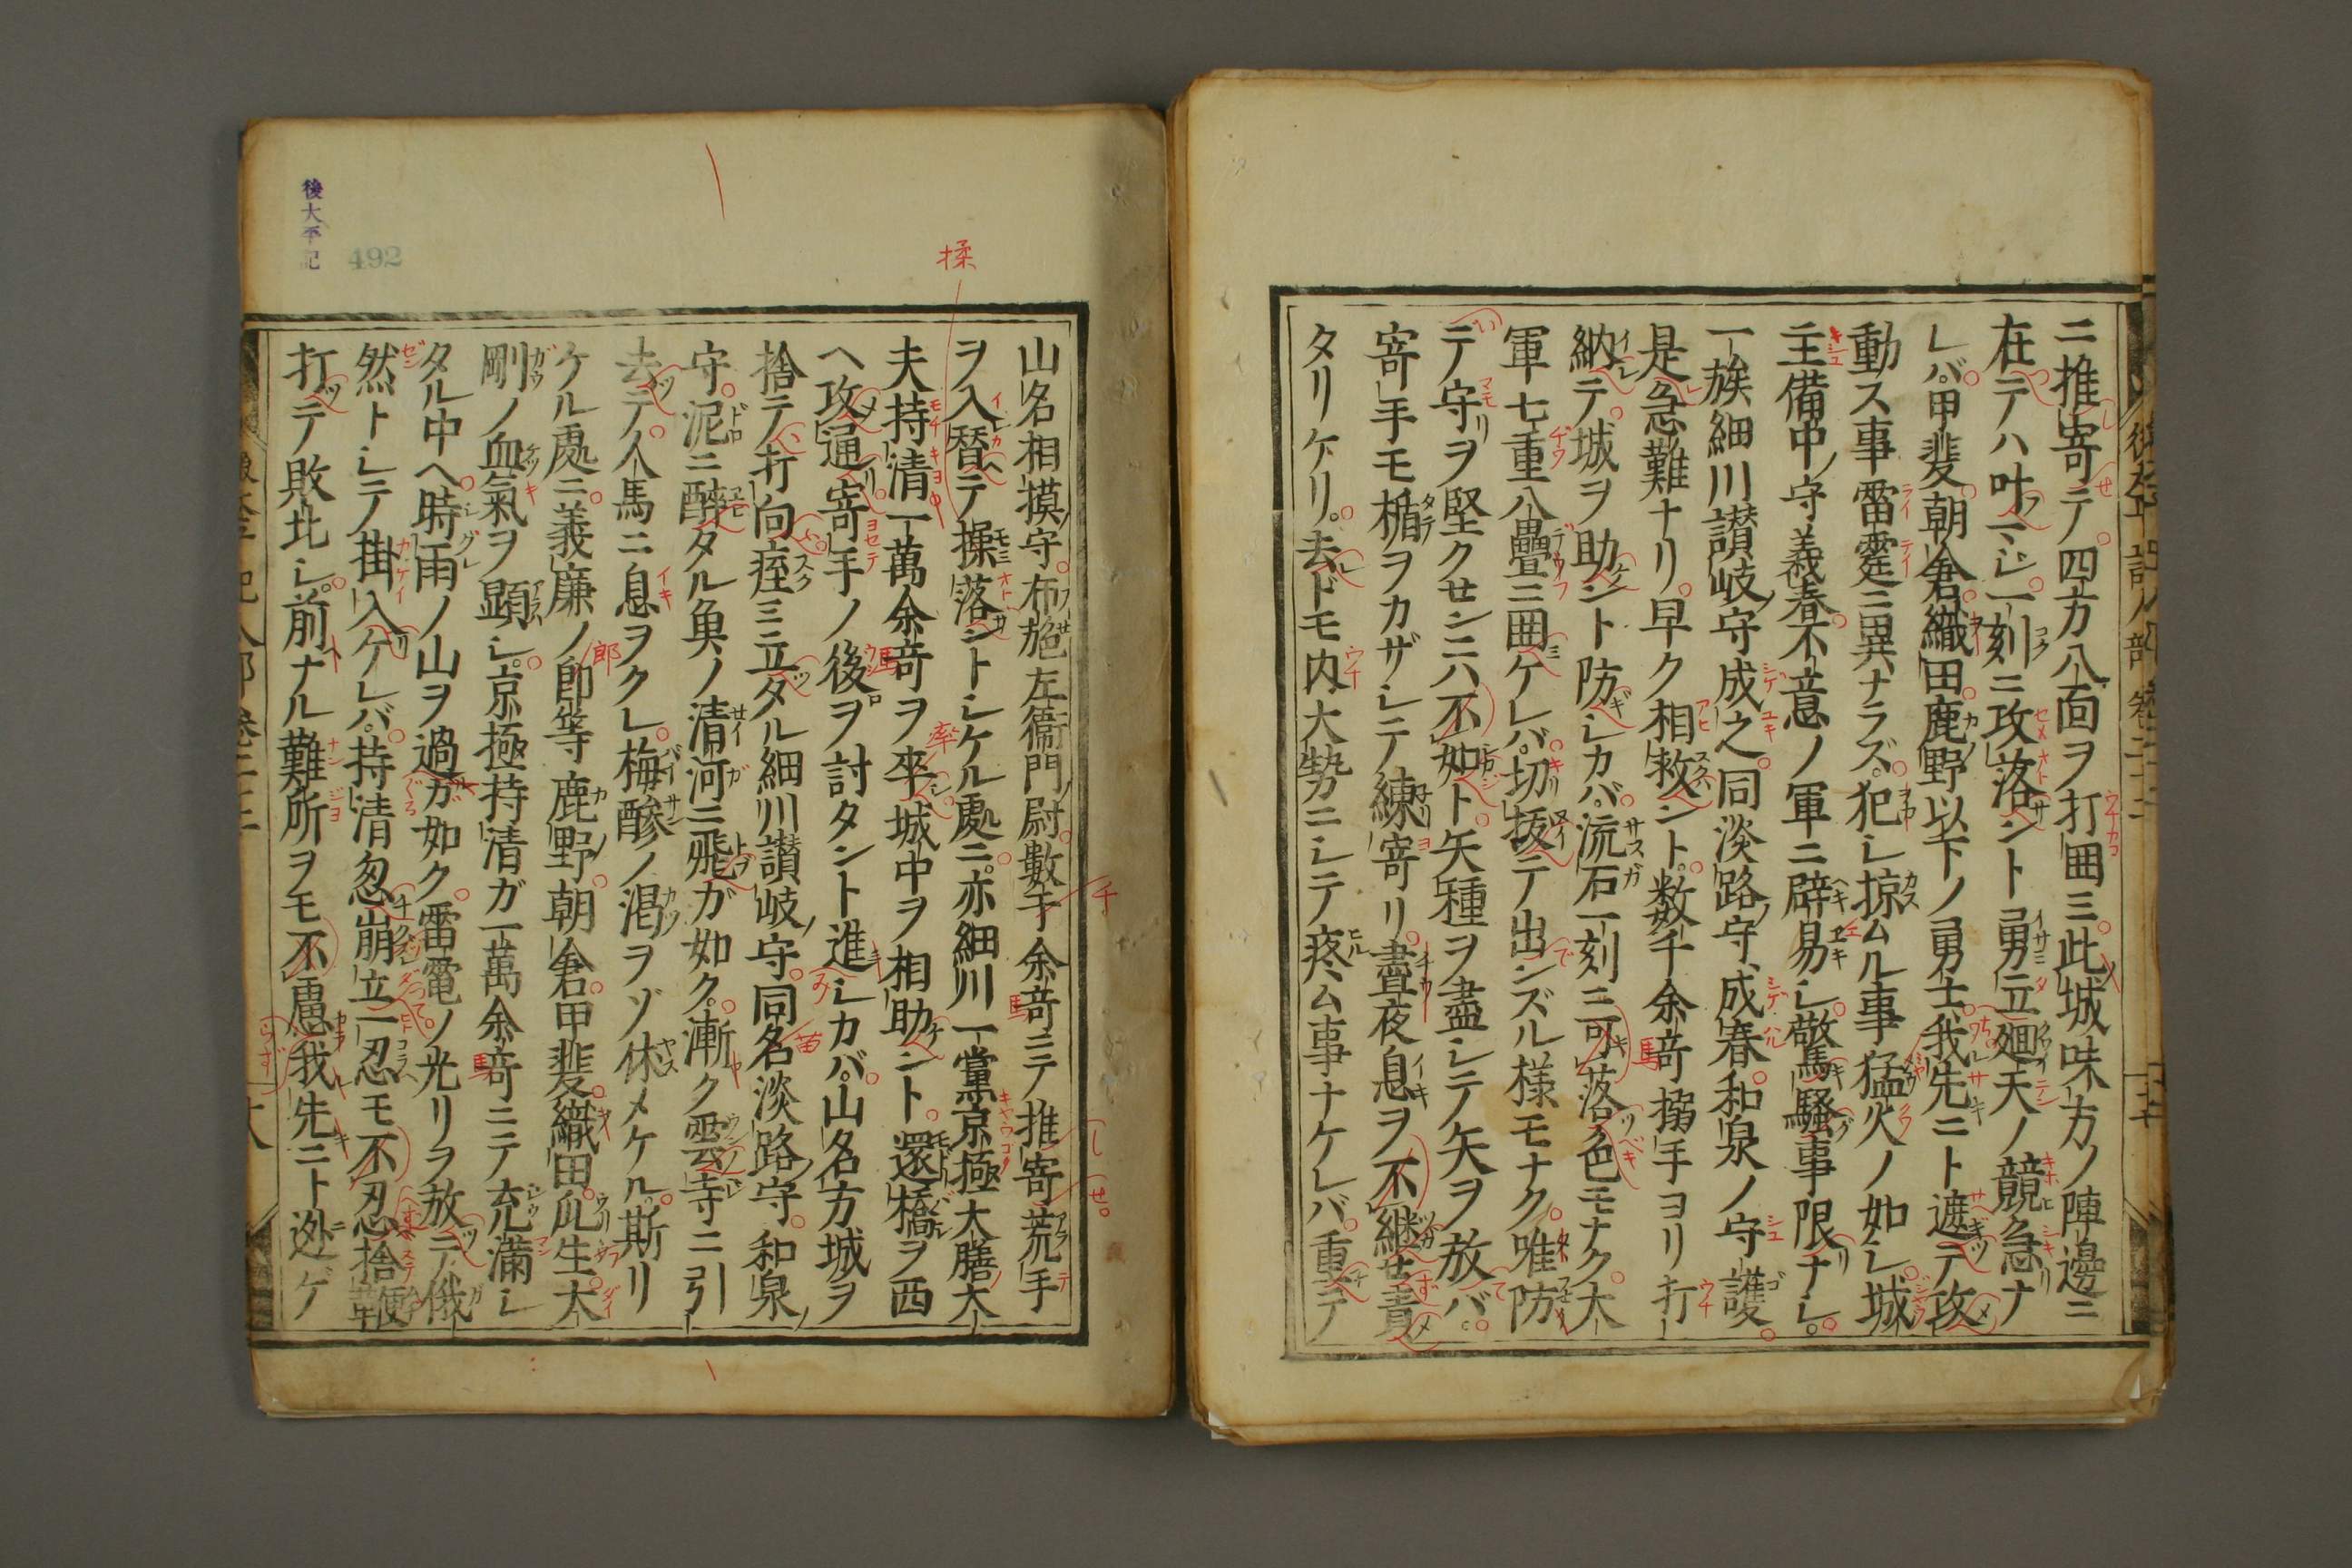 ニ推寄テ四方八面ヲ打囲ミ此城味方ノ陣邊ニ
在テハ叶マシ一刻ニ攻落ント勇立廻天ノ競急ナ
レバ甲斐朝倉織田鹿野以下ノ勇士我先ニト遮テ攻
動ス事雷霆ニ異ナラズ犯シ掠ムル事猛火ノ如シ城
主備中ノ守義春不意ノ軍ニ辟易シ驚騒事限ナシ
一族細川讃岐ノ守成之同淡路ノ守成春和泉ノ守護
是急難ナリ早ク相救ント数千余竒搦手ヨリ打
納テ城ヲ助ント防シカバ流石一刻ニ可落色モナク大
軍七重八疊ニ囲ケレバ切抜テ出ンズル様モナク唯防
テ守ヲ堅クセンニハ不如ト矢種ヲ盡シテ矢ヲ放バ
寄手モ楯ヲカザシテ練寄リ晝夜息ヲ不継せ責
タリケリ去ドモ内大勢ニシテ疼ム事ナケレバ重テ
後太平記人部 巻三十二
後大平記
492
揉
山名相摸ノ守布施左衞門ノ尉數千余竒ニテ推寄荒手
ヲ入暦テ操落ントシケル處ニ亦細川一黨京極大膳大
夫持清一萬余竒ヲ卒シ城中ヲ相助ント還橋ヲ西
ヘ攻通寄手ノ後ヲ討タント進シカバ山名方城ヲ
捨テ打向痓ミ立タル細川讃岐ノ守同名淡路ノ守和泉ノ
守泥ニ醉タル魚ノ清河ニ飛ガ如ク漸ク雲ノ寺ニ引
去テ人馬ニ息ヲクレ梅醦ノ渇ヲゾ休メケル斯リ
ケル處ニ義廉ノ即等鹿野朝倉甲斐織田瓜生太
剛ノ血氣ヲ顕シ京極持清ガ一萬余竒ニテ充満シ
タル中ヘ時雨ノ山ヲ過ガ如ク雷電ノ光リヲ放テ俄
然トシテ掛入ケレバ持清忽崩立一忍モ不忍捨鞭
打テ敗北シ前ナル難所ヲモ不慮我先ニト迯ゲ